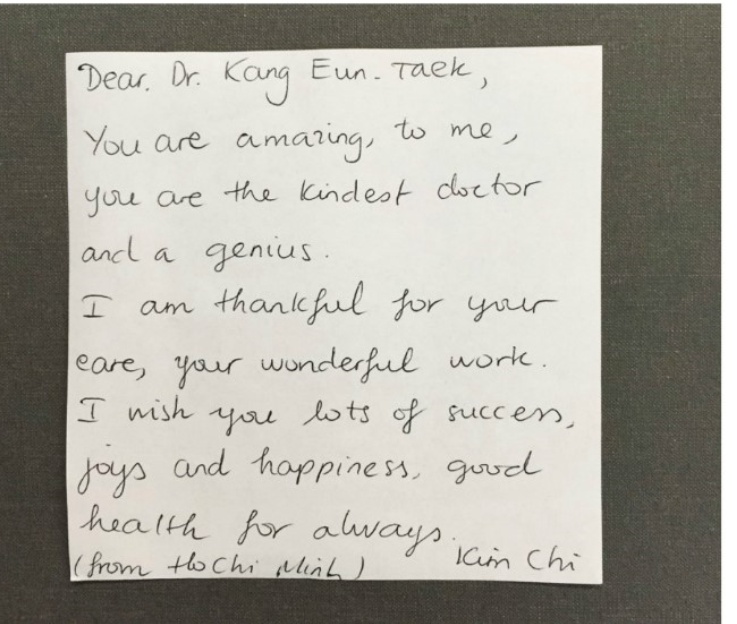 Dear. Dr. Kang Eun-Taek,
You are amazing, to me,
you are the kindest doctor
and a genius.
I am thankful for your
care, your wonderful work.
I wish you lots of success,
joys and happiness, good
health for always.
(from Ho Chi Minh) Kim Chi